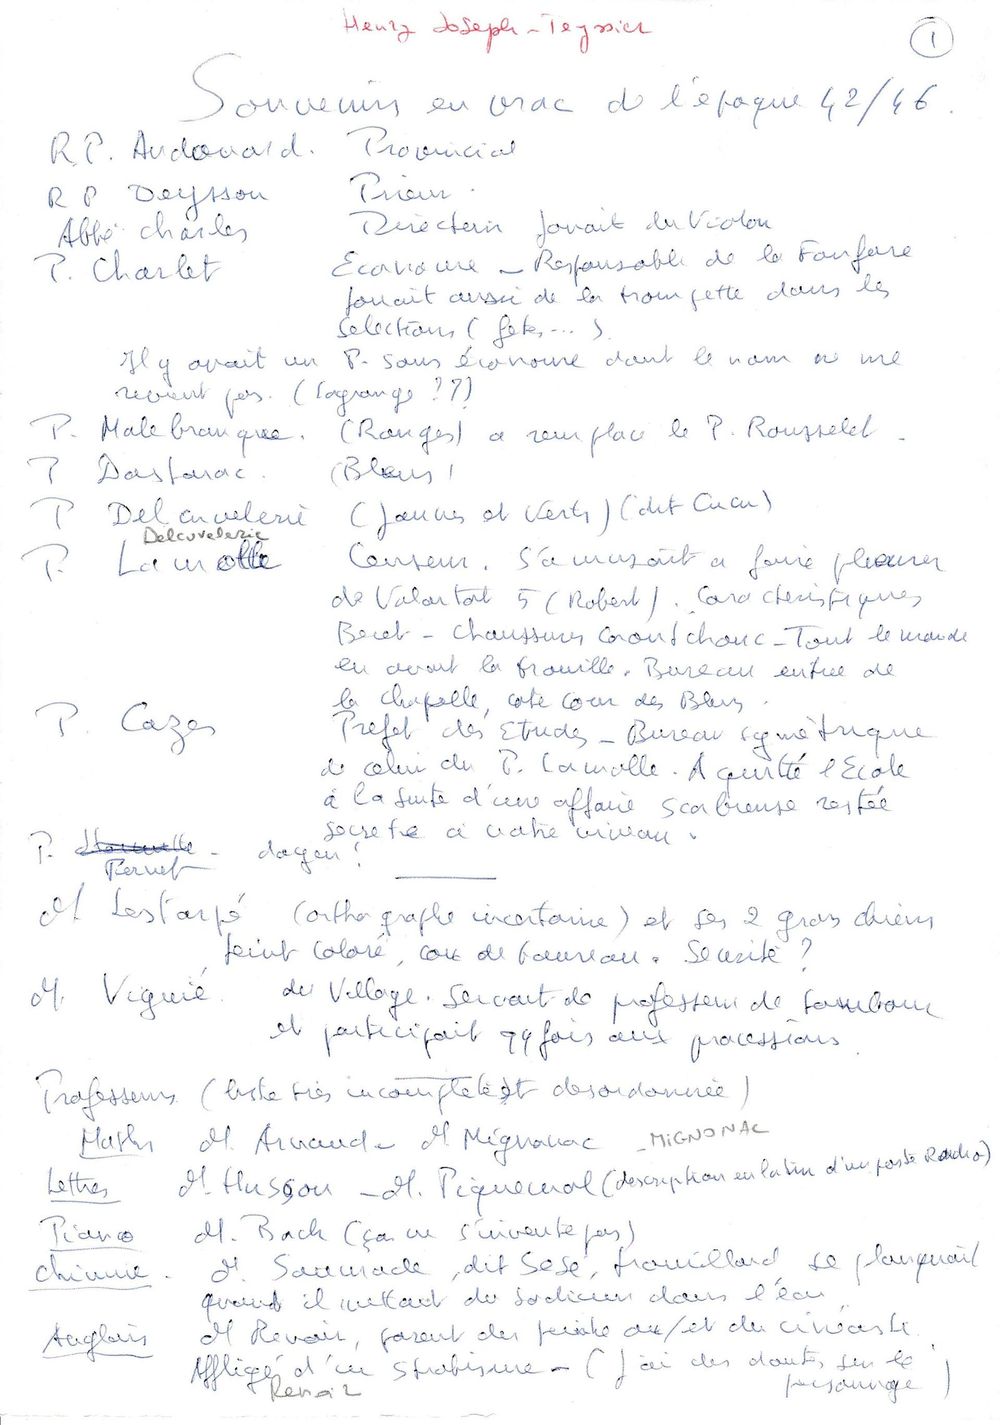 Henry Joseph-Teyssier
1
Souvenirs en vrac de l'époque 42/46.
R.P. Audouard. Provincial
R P Deysson Prieur.
Abbé Charles Directeur jouait du Violon
P. Charlet Econome - Responsable de la Fanfare
jouait aussi de la trompette dans les
selections (fetes...)
Il y avait un P. sous économe dont le nom ne me
revient pas. (Lagrange ??)
P. Malebranque. (Rouges) a remplacé le P. Rousselet.
P Dastarac. (Bleus)
P Delcuvelerie (Jaunes et Verts) (dit Cucu)
Delcuvelerie
P. Lamolle Censeur. S'amusait a faire pleurer
de Valartort 5 (Robert). Caractéristiques
Beret - Chaussures Caoutchouc - Tout le monde
en avait la trouille. Bureau entree de
la chapelle, coté Cour des Bleus.
P. Cazes Prefet des Etudes - Bureau symétrique
de celui du P. Lamolle. A quitté l'Ecole
à la suite d'une affaire scabreuse restée
secrete a notre niveau.
P. - doyen?
Pernet
M Lestarpé (orthographe incertaine) et ses 2 gros chiens
teint coloré, cou de taureau. Securité ?
M. Viguié. du Village. Servait de professeur de tambour
et participait qq fois aux processions
Professeurs (liste très incomplete et desordonnée)
Maths M. Arnaud - M Mignonac - MIGNONAC
Lettres M. Husson - M. Piquemal (description en latin d'un poste Radio)
Piano M. Bach (ça ne s'invente pas)
Chimie. M. Saumade, dit Sésé, trouillard se planquait
quand il mettait du sodium dans l'eau
Anglais M Renoir, parent du peintre ou/et du cinéaste.
Affligé d'un strabisme - (j'ai des doutes sur le
Renoir personnage)